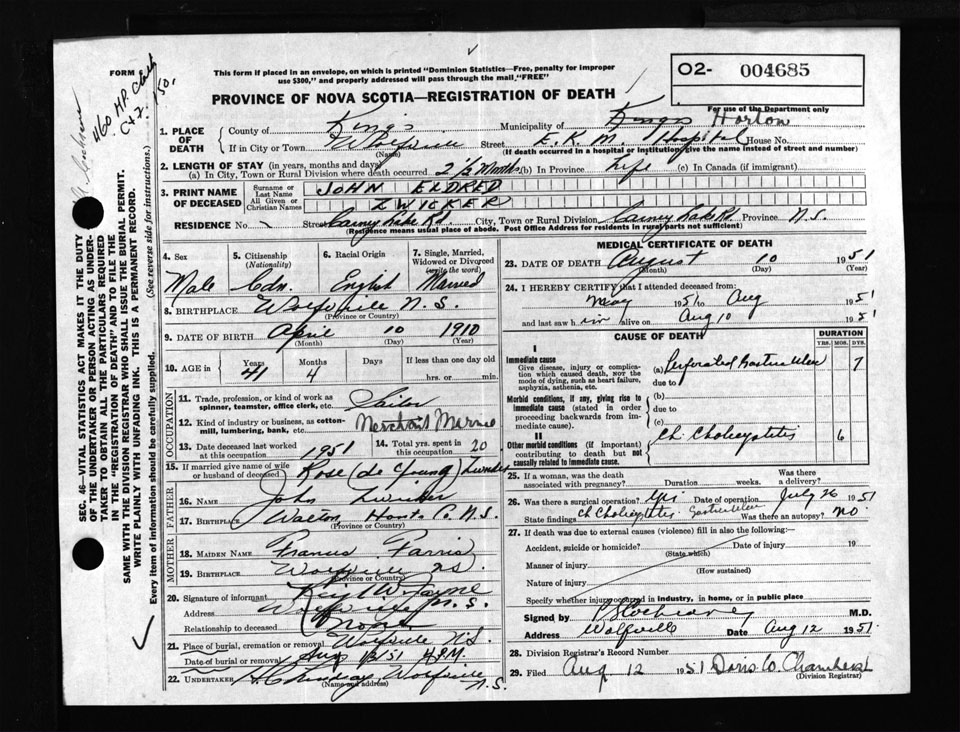 FORM 6
460 M.P. Clark
C x 2. '50.
This form if placed in an envelope, on which is printed "Dominion Statistics—Free, penalty for improper
use $300," and properly addressed will pass through the mail, "FREE"
PROVINCE OF NOVA SCOTIA—REGISTRATION OF DEATH
O2- 004685
For use of the Department only
1. PLACE OF DEATH County of Kings Municipality of Kings Horton
If in City or Town Wolfville (Name) Street E. K. M. Hospital House No.
(If death occurred in a hospital or institution, give the name instead of street and number)
2. LENGTH OF STAY (in years, months and days)
(a) In City, Town or Rural Division where death occurred 2 1/2 Months (b) In Province Life (c) In Canada (if immigrant)
3. PRINT NAME OF DECEASED Surname or Last Name JOHN ELDRED
All Given or Christian Names ZWICKER
RESIDENCE No. Street Lake Rd. City, Town or Rural Division Lake Rd. Province N.S.
(Residence means usual place of abode. Post Office Address for residents in rural parts not sufficient)
4. Sex Male
5. Citizenship (Nationality) Cdn.
6. Racial Origin English
7. Single, Married, Widowed or Divorced (write the word) Married
8. BIRTHPLACE Wolfville N.S.
(Province or Country)
9. DATE OF BIRTH April 10 1910
(Month) (Day) (Year)
10. AGE in Years 41 Months 4 Days If less than one day old
hrs. or min.
OCCUPATION
11. Trade, profession, or kind of work as spinner, teamster, office clerk, etc. Sailor
12. Kind of industry or business, as cotton-mill, lumbering, bank, etc. Merchant Marine
13. Date deceased last worked at this occupation 1951
14. Total yrs. spent in this occupation 20
15. If married give name of wife or husband of deceased Rose (de Young) Zwicker
FATHER
16. Name John Zwicker
17. Birthplace Walton Hants Co. N.S.
(Province or Country)
MOTHER
18. MAIDEN NAME Francis Farris
19. BIRTHPLACE Wolfville N.S.
(Province or Country)
20. Signature of informant
Address Wolfville N.S.
Relationship to deceased None
21. Place of burial, cremation or removal Wolfville N.S.
Date of burial or removal Aug 13/51 4 P.M.
22. UNDERTAKER Wolfville N.S.
(Name and address)
MEDICAL CERTIFICATE OF DEATH
23. DATE OF DEATH August 10 1951
(Month) (Day) (Year)
24. I HEREBY CERTIFY that I attended deceased from:
May 1951 to Aug 1951
and last saw him alive on Aug 10 1951
CAUSE OF DEATH DURATION
YRS. MOS. DYS.
I
Immediate cause
Give disease, injury or complication which caused death, NOT the mode of dying, such as heart failure, asphyxia, asthenia, etc.
(a) Perforated Gastric Ulcer 7
due to
Morbid conditions, if any, giving rise to immediate cause (stated in order proceeding backwards from immediate cause).
(b)
due to
(c)
II
Other morbid conditions (if important) contributing to death but not causally related to immediate cause.
Ch. Cholecystitis 6
25. If a woman, was the death associated with pregnancy? Duration weeks. Was there a delivery?
26. Was there a surgical operation? Yes Date of operation July 26 1951
State findings Ch Cholecystitis Gastric Ulcer Was there an autopsy? no
27. If death was due to external causes (violence) fill in also the following:—
Accident, suicide or homicide? Date of injury 19
(State which)
Manner of injury
(How sustained)
Nature of injury
Specify whether injury occurred in industry, in home, or in public place
Signed by M.D.
Address Wolfville Date Aug 12 1951
28. Division Registrar's Record Number
29. Filed Aug 12 1951 Doris O. Chambers
(Division Registrar)
SEC. 46—VITAL STATISTICS ACT MAKES IT THE DUTY
OF THE UNDERTAKER OR PERSON ACTING AS UNDER-
TAKER TO OBTAIN ALL THE PARTICULARS REQUIRED
IN THE "REGISTRATION OF DEATH" AND TO FILE THE
SAME WITH THE DIVISION REGISTRAR WHO SHALL ISSUE THE BURIAL PERMIT.
WRITE PLAINLY WITH UNFADING INK. THIS IS A PERMANENT RECORD.
Every item of information should be carefully supplied. (See reverse side for instructions.)